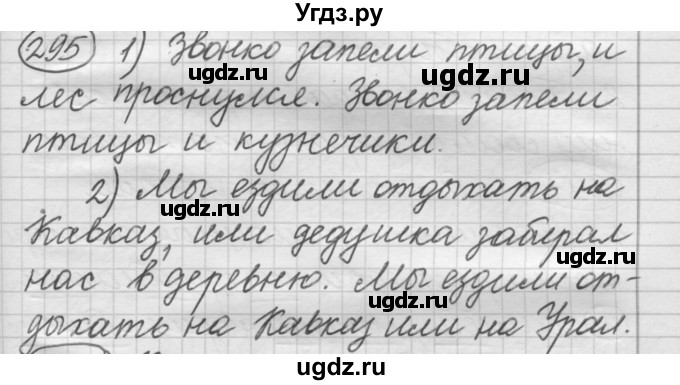 Угдз.ру
295 1) Звонко запели птицы, и
ugdz.ru ugdz.ru
лес проснулся. Звонко запели
ugdz.ru
птицы и кузнечики.
2) Мы ездили отдыхать на
ugdz.ru ugdz.ru
Кавказ, или дедушка забирал
нас в деревню. Мы ездили от-
ugdz.ru
дыхать на Кавказ или на Урал.
ugdz.ru
ugdz.ru